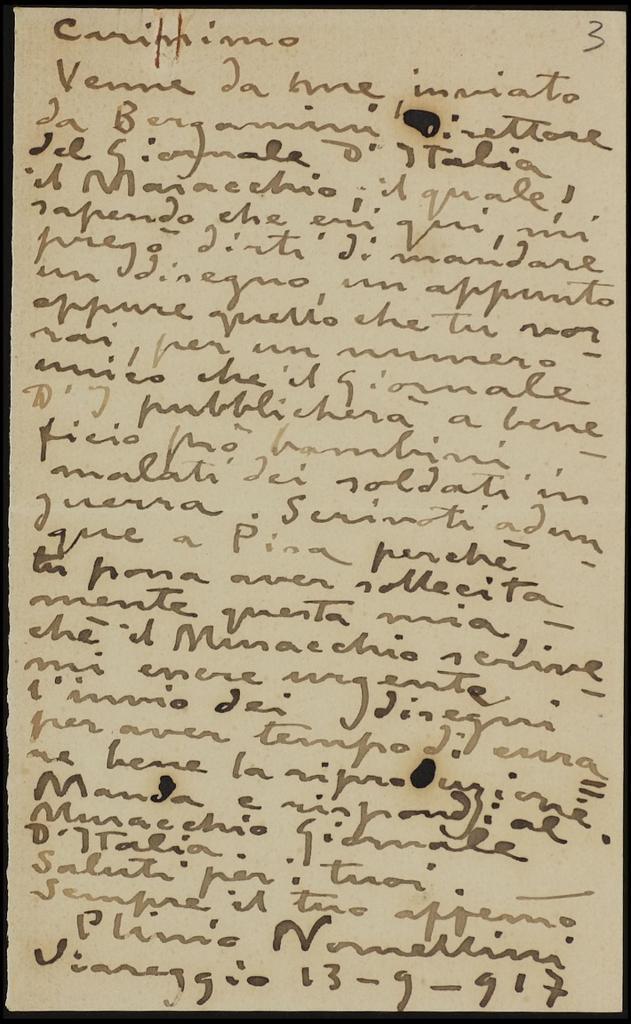 3
Carissimo
Venne da me, inviato
da Bergamini Direttore
del Giornale D'Italia
il Musacchio, il quale,
sapendo che eri qui, mi
pregò dirti di mandare
un disegno, un appunto
oppure quello che tu vor-
rai, per un numero
unico che il Giornale
D'I pubblicherà a bene-
ficio prò bambini
malati dei soldati in
guerra. Scrivoti adun-
que a Pisa perchè
tu possa aver sollecita-
mente questa mia,
chè il Musacchio scrive-
mi essere urgente
l'invio dei disegni
per aver tempo di cura=
re bene la riproduzione.
Manda e rispondi al
Musacchio Giornale
D'Italia.
Saluti per i tuoi
Sempre il tuo affemo
Plinio Nomellini
Viareggio 13-9-917